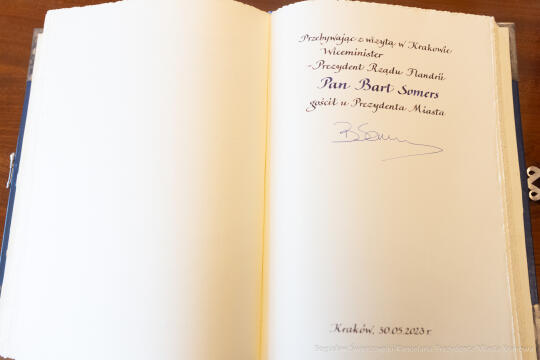 Przebywając z wizytą w Krakowie
Wiceminister
-Prezydent Rządu Flandrii
Pan Bart Somers
gościł u Prezydenta Miasta
BSomers
Kraków, 30.05.2023 r.
Bogusław Świerzowski/Kancelaria Prezydenta Miasta Krakowa